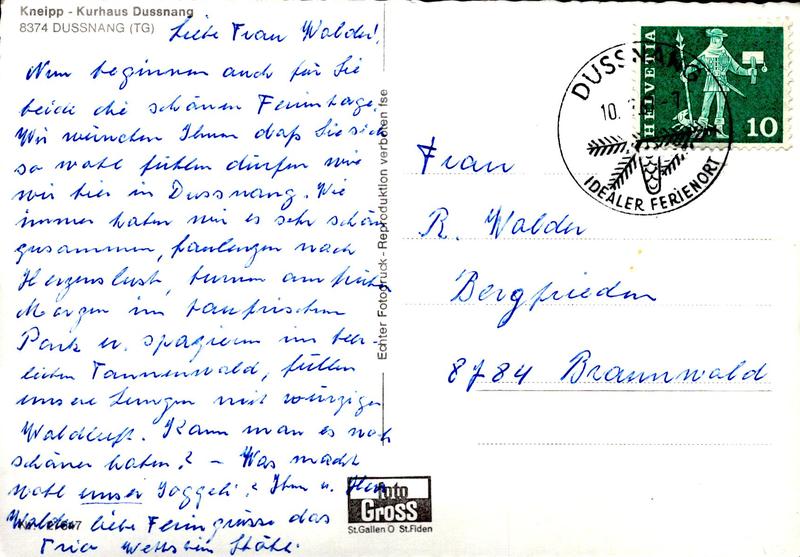 Kneipp - Kurhaus Dussnang
8374 DUSSNANG (TG)
Liebe Frau Walder!
Nun beginnen auch für Sie
beide die schönen Ferientage.
Wir wünschen Ihnen daß Sie sich
so wohl fühlen dürfen wie
wir hier in Dussnang. Wie
immer haben wir es sehr schön
zusammen, faulenzen nach
Herzenslust, turnen am frühen
Morgen im taufrischen
Park u. spazieren im herr-
lichen Tannenwald, füllen
unsere Lungen mit würziger
Waldluft. Kann man es noch
schöner haben? - Was macht
wohl unser Joggeli? Ihnen u. Herr
Walder liebe Feriengrüsse das
Trio Wettstein
Echter Fotodruck - Reproduktion verboten
foto
GROSS
St.Gallen O St.Fiden
HELVETIA
10
DUSSNANG
10.
IDEALER FERIENORT
Frau
R. Walder
Bergfrieden
8784 Braunwald